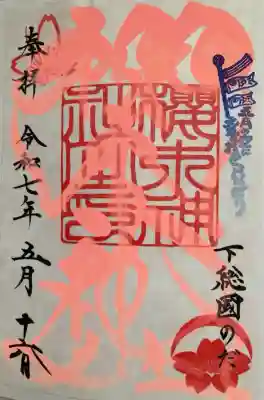 下総國のだ
櫻木神
櫻木神社
奉拝 令和七年 五月 十六日